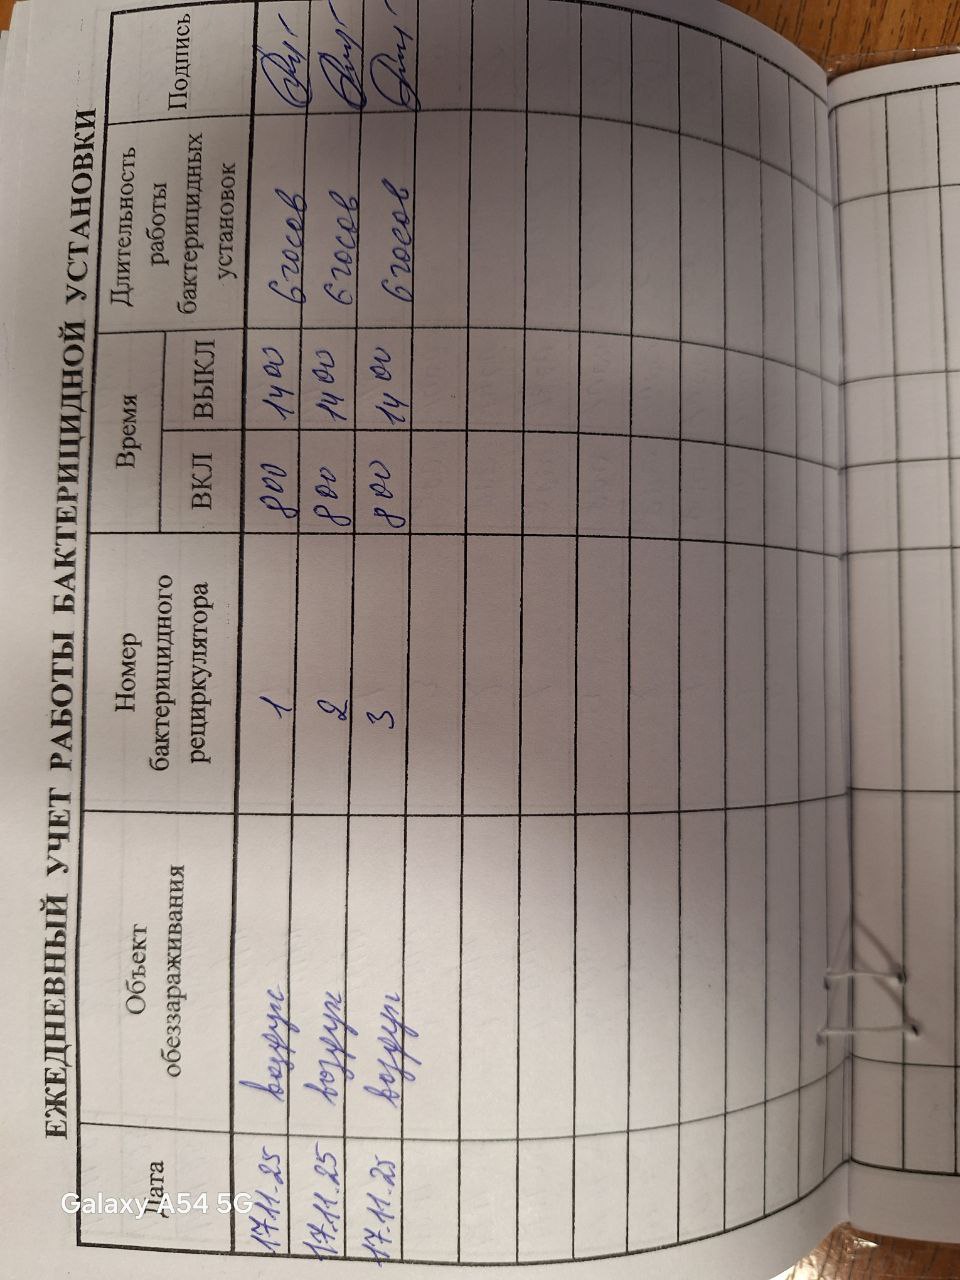 ЕЖЕДНЕВНЫЙ УЧЕТ РАБОТЫ БАКТЕРИЦИДНОЙ УСТАНОВКИ
Дата
Объект
обеззараживания
Номер
бактерицидного
рециркулятора
Время
ВКЛ ВЫКЛ
Длительность
работы
бактерицидных
установок
Подпись
17.11.25 воздух 1 8 00 14 00 6 часов
17.11.25 воздух 2 8 00 14 00 6 часов
17.11.25 воздух 3 8 00 14 00 6 часов
Galaxy A54 5G